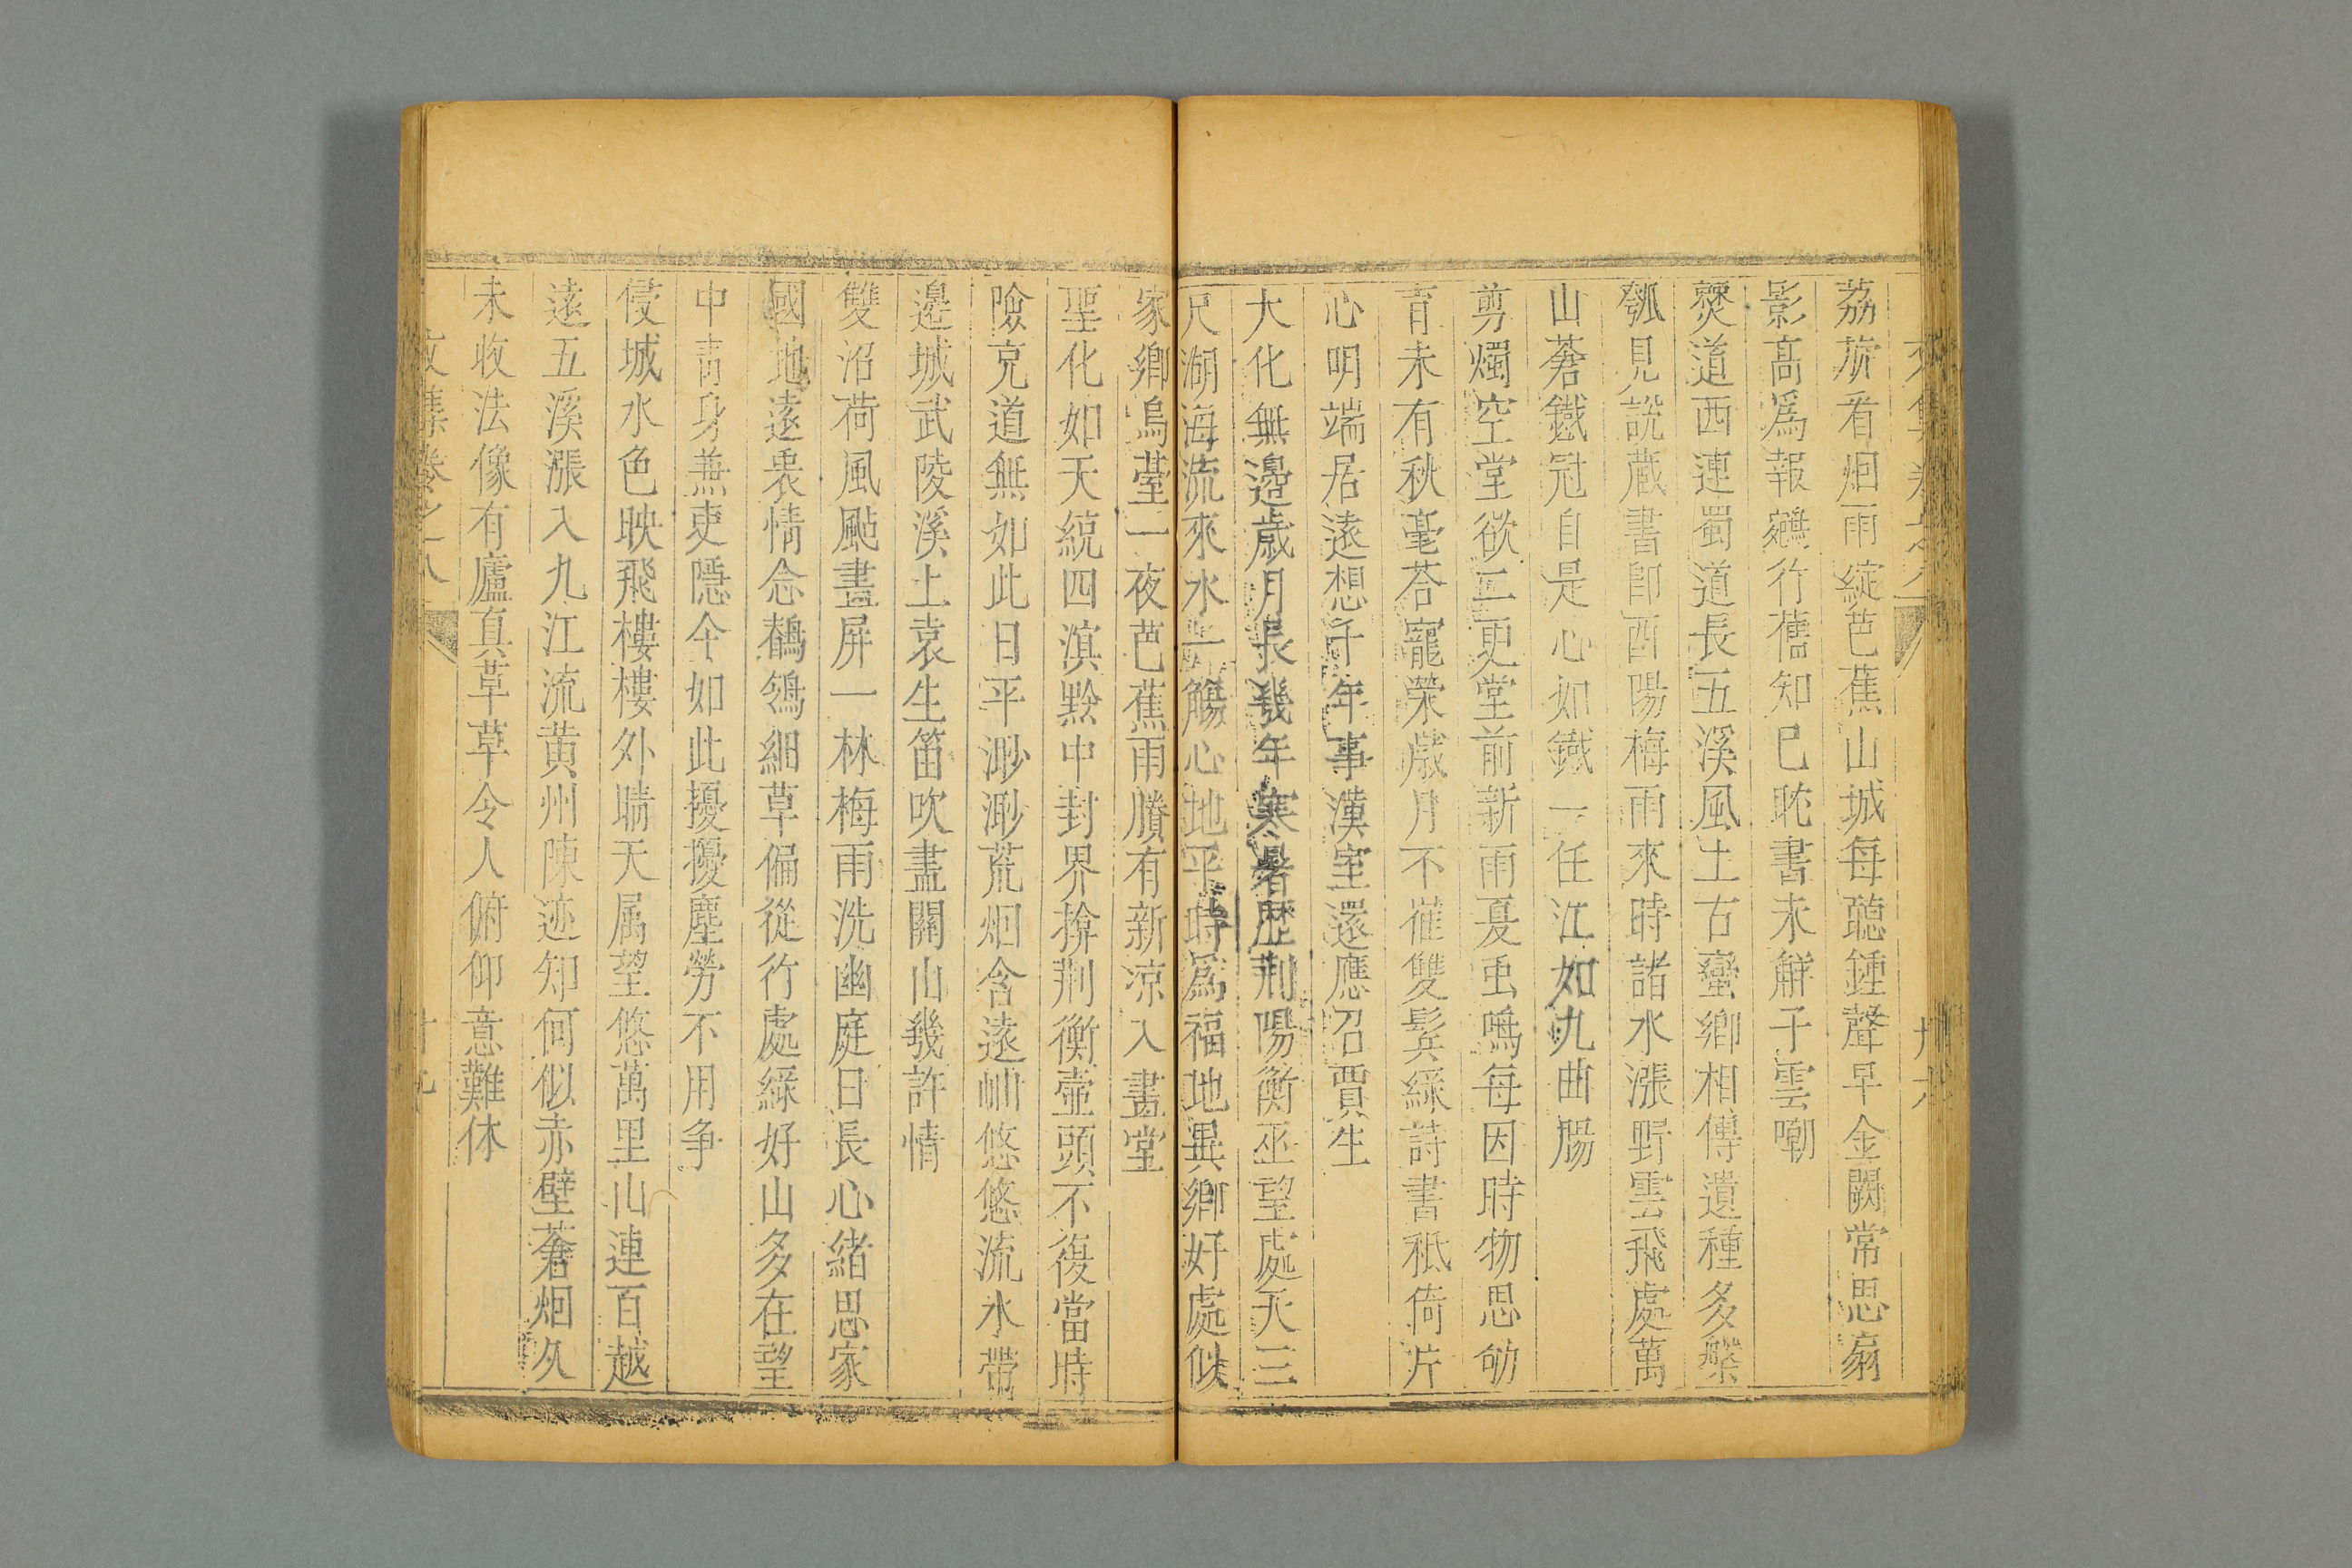 荔旂看烟雨綻芭蕉山城每聽鍾聲早金闕常思扇
影高爲報鵷行舊知巳眈書未觧子雲嘲
僰道西連蜀道長五溪風土古蠻鄉相傳遺種多槃
瓠見說藏書即酉陽梅雨來時諸水漲野雲飛處萬
山蒼鐵冠自是心如鐵一任江如九曲腸
剪燭空堂欲二更堂前新雨夏虫鳴每因時物思
育未有秋毫荅寵榮歲月不催雙鬂綠詩書秪倚片
心明端居遠想千年事漢室還應召賈生
大化無邉歲月長幾年寒暑歴荆陽衡巫望處天三
尺湖海流來水一觴心地平時爲福地異鄉好處似
家鄉塢薹一夜芭蕉雨賸有新凉入畫堂
聖化如天統四滇黔中封界捹荆衡壷頭不復當時
險克道無如此日平渺渺荒烟含遠岫悠悠流水帶
邉城武陵溪上袁生笛吹盡關山幾許情
雙沼荷風颭畫屏一林梅雨洗幽庭日長心緒思家
國地遠畏情念鶺鴒細草偏從行處綠好山多在望
中青身兼吏隱今如此擾擾塵勞不用争
侵城水色映飛樓樓外晴天属望悠萬里山連百越
遠五溪漲入九江流黄州陳迹知何似赤壁蒼烟久
未收法像有廬真草草令人俯仰意難休
文集卷之八 十九